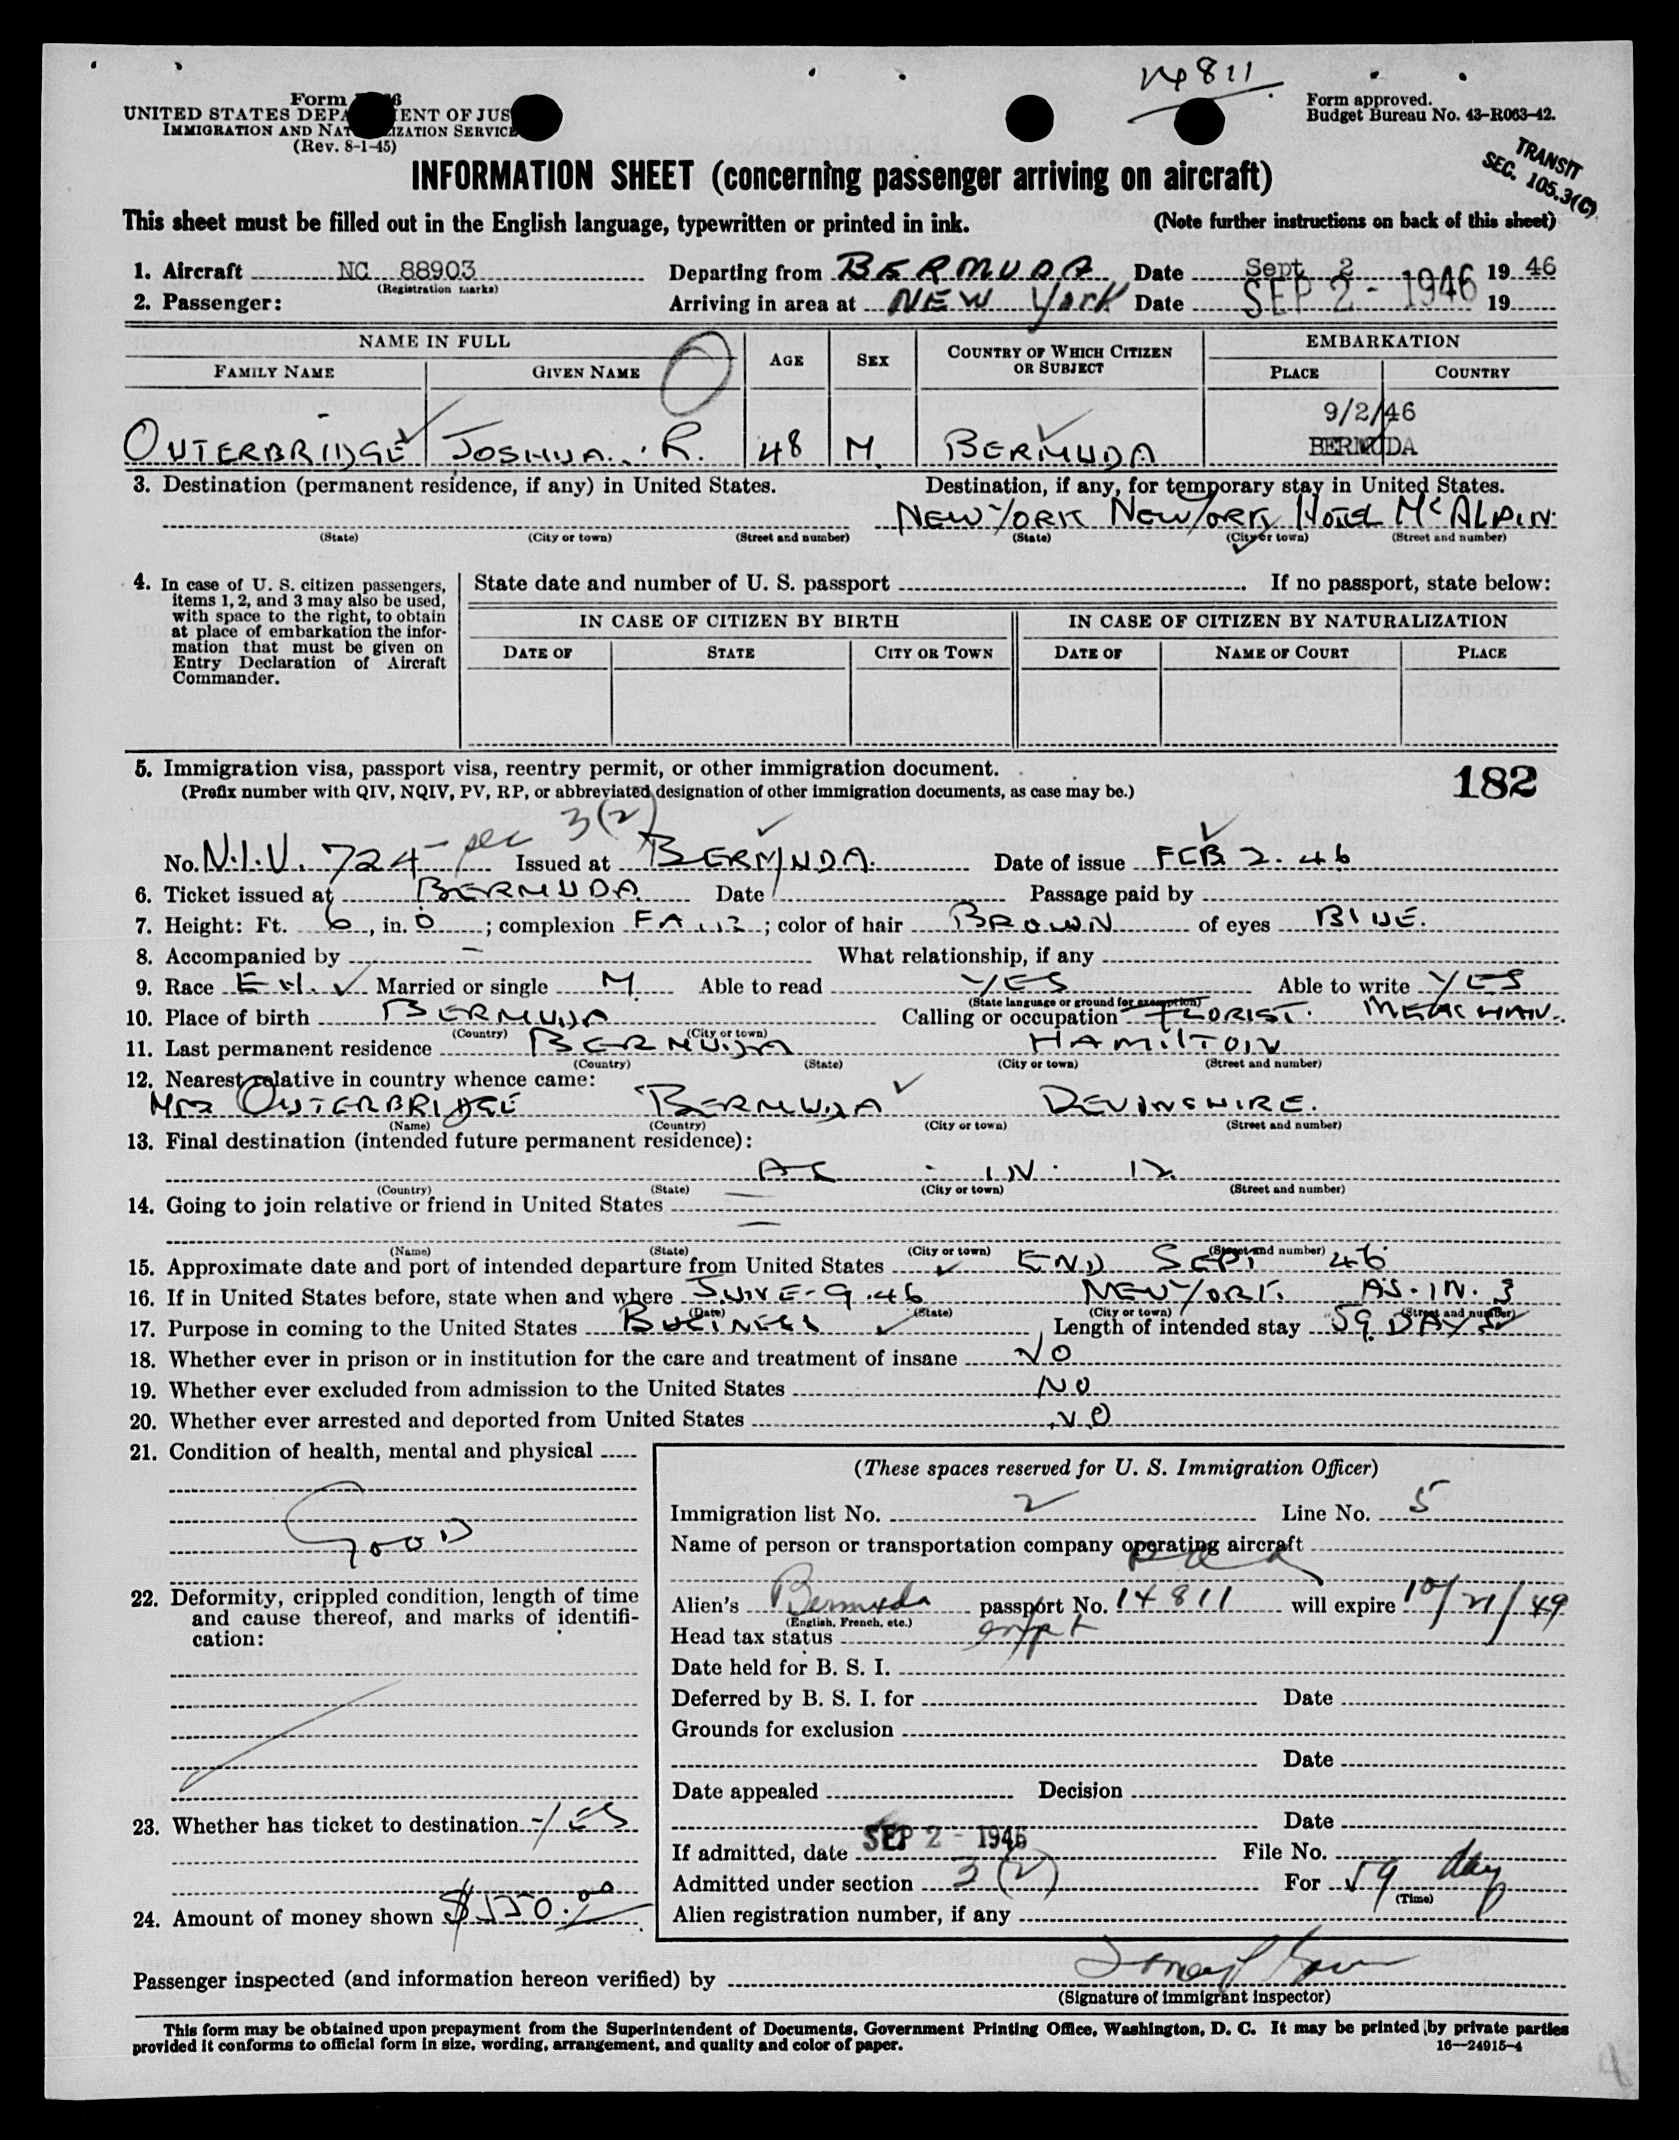 14811
Form
UNITED STATES DEPA ENT OF JUS
IMMIGRATION AND NAT IZATION SERVICE
(Rev. 8-1-45)
Form approved.
Budget Bureau No. 43-R063-42.
TRANSIT
SEC. 105.3(C)
INFORMATION SHEET (concerning passenger arriving on aircraft)
This sheet must be filled out in the English language, typewritten or printed in ink. (Note further instructions on back of this sheet)
1. Aircraft NC 88903 Departing from BERMUDA Date Sept 2 19 46
(Registration marks)
2. Passenger: Arriving in area at NEW York Date SEP 2 - 1946 19
NAME IN FULL AGE SEX COUNTRY OF WHICH CITIZEN OR SUBJECT EMBARKATION
FAMILY NAME GIVEN NAME PLACE COUNTRY
9/2/46
OUTERBRIDGE JOSHUA. R. 48 M. BERMUDA BERMUDA
3. Destination (permanent residence, if any) in United States. Destination, if any, for temporary stay in United States.
NEW YORK NEW YORK HOTEL McALPIN.
(State) (City or town) (Street and number) (State) (City or town) (Street and number)
4. In case of U. S. citizen passengers, items 1, 2, and 3 may also be used, with space to the right, to obtain at place of embarkation the information that must be given on Entry Declaration of Aircraft Commander.
State date and number of U. S. passport If no passport, state below:
IN CASE OF CITIZEN BY BIRTH IN CASE OF CITIZEN BY NATURALIZATION
DATE OF STATE CITY OR TOWN DATE OF NAME OF COURT PLACE
5. Immigration visa, passport visa, reentry permit, or other immigration document.
(Prefix number with QIV, NQIV, PV, RP, or abbreviated designation of other immigration documents, as case may be.)
182
No. N.I.V. 724 - sec 3(2) Issued at BERMUDA. Date of issue FEB 2. 46
6. Ticket issued at BERMUDA Date Passage paid by
7. Height: Ft. 6, in. 0; complexion FAIR; color of hair BROWN of eyes BLUE.
8. Accompanied by — What relationship, if any
9. Race EN. Married or single M Able to read YES Able to write YES
(State language or ground for exemption)
10. Place of birth BERMUDA Calling or occupation FLORIST. MERCHAN.
(Country) (City or town)
11. Last permanent residence BERMUDA HAMILTON
(Country) (State) (City or town) (Street and number)
12. Nearest relative in country whence came:
Mrs OUTERBRIDGE BERMUDA DEVONSHIRE.
(Name) (Country) (City or town) (Street and number)
13. Final destination (intended future permanent residence):
AS IN. 12
(Country) (State) (City or town) (Street and number)
14. Going to join relative or friend in United States —
—
(Name) (State) (City or town) (Street and number)
15. Approximate date and port of intended departure from United States END SEPT 46
16. If in United States before, state when and where JUNE-9.46 NEW YORK. AS. IN. 3
(Date) (State) (City or town) (Street and number)
17. Purpose in coming to the United States BUSINESS Length of intended stay 59. DAYS
18. Whether ever in prison or in institution for the care and treatment of insane NO
19. Whether ever excluded from admission to the United States NO
20. Whether ever arrested and deported from United States NO
21. Condition of health, mental and physical
GOOD
22. Deformity, crippled condition, length of time and cause thereof, and marks of identification:
23. Whether has ticket to destination YES
24. Amount of money shown $550.00
(These spaces reserved for U. S. Immigration Officer)
Immigration list No. 2 Line No. 5
Name of person or transportation company operating aircraft
Alien's Bermuda passport No. 14811 will expire 10/21/49
(English, French, etc.)
Head tax status
Date held for B. S. I.
Deferred by B. S. I. for Date
Grounds for exclusion
Date
Date appealed Decision
Date
If admitted, date SEP 2 - 1946 File No.
Admitted under section 3(2) For 59 day
(Time)
Alien registration number, if any
Passenger inspected (and information hereon verified) by
(Signature of immigrant inspector)
This form may be obtained upon prepayment from the Superintendent of Documents, Government Printing Office, Washington, D. C. It may be printed by private parties
provided it conforms to official form in size, wording, arrangement, and quality and color of paper. 16—24915-4
4